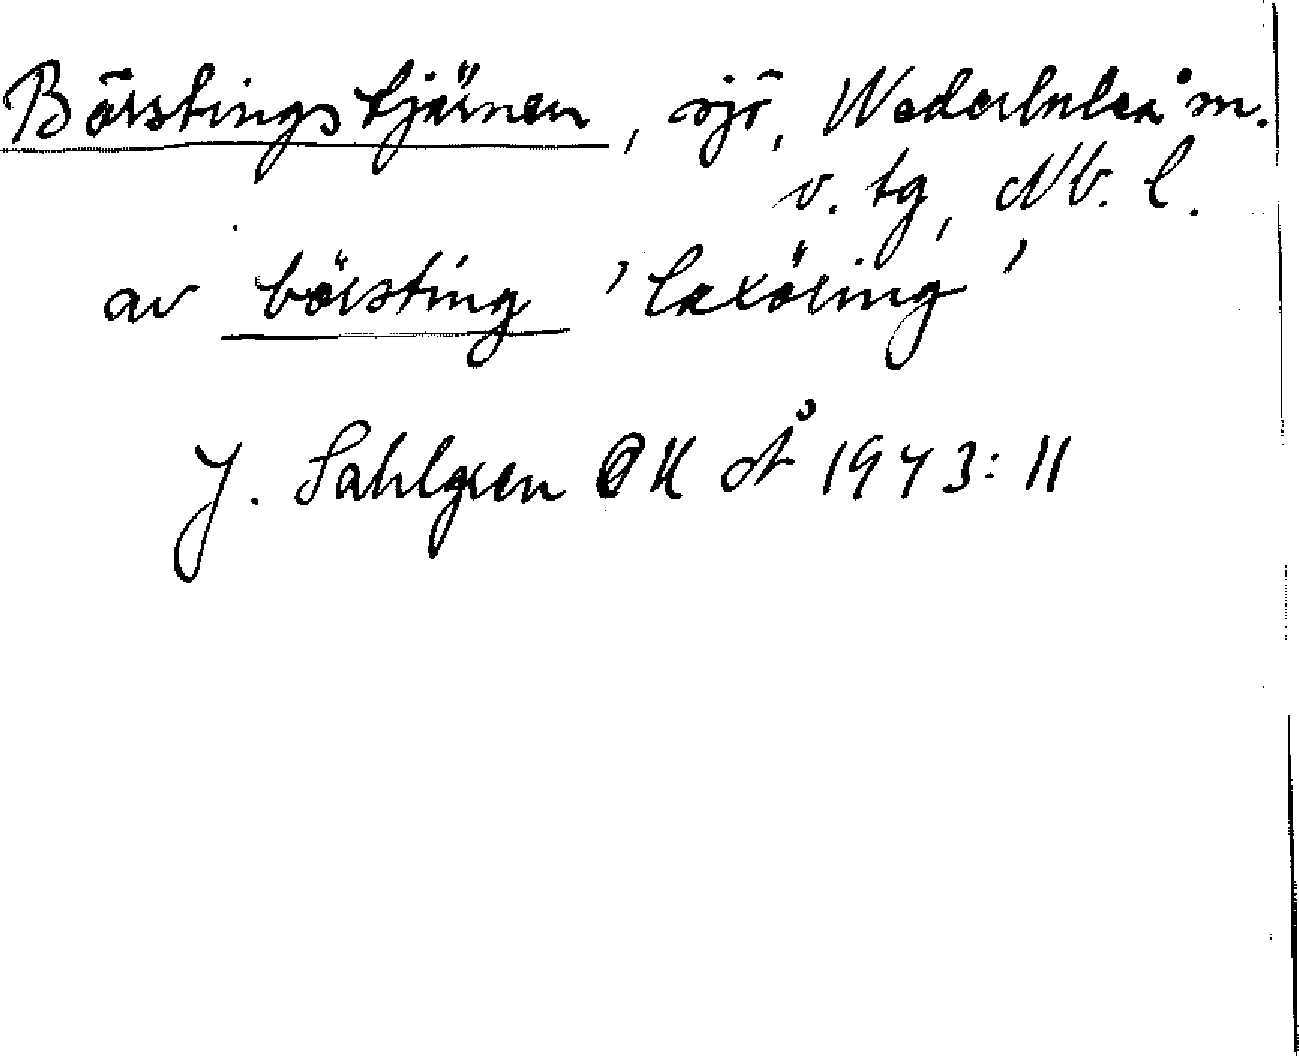 Börstingstjärnen, sjö, Nederluleå sn.
v. tg, Nb. l.
av börsting 'laxöring'
J. Sahlgren OK å 1943: 11